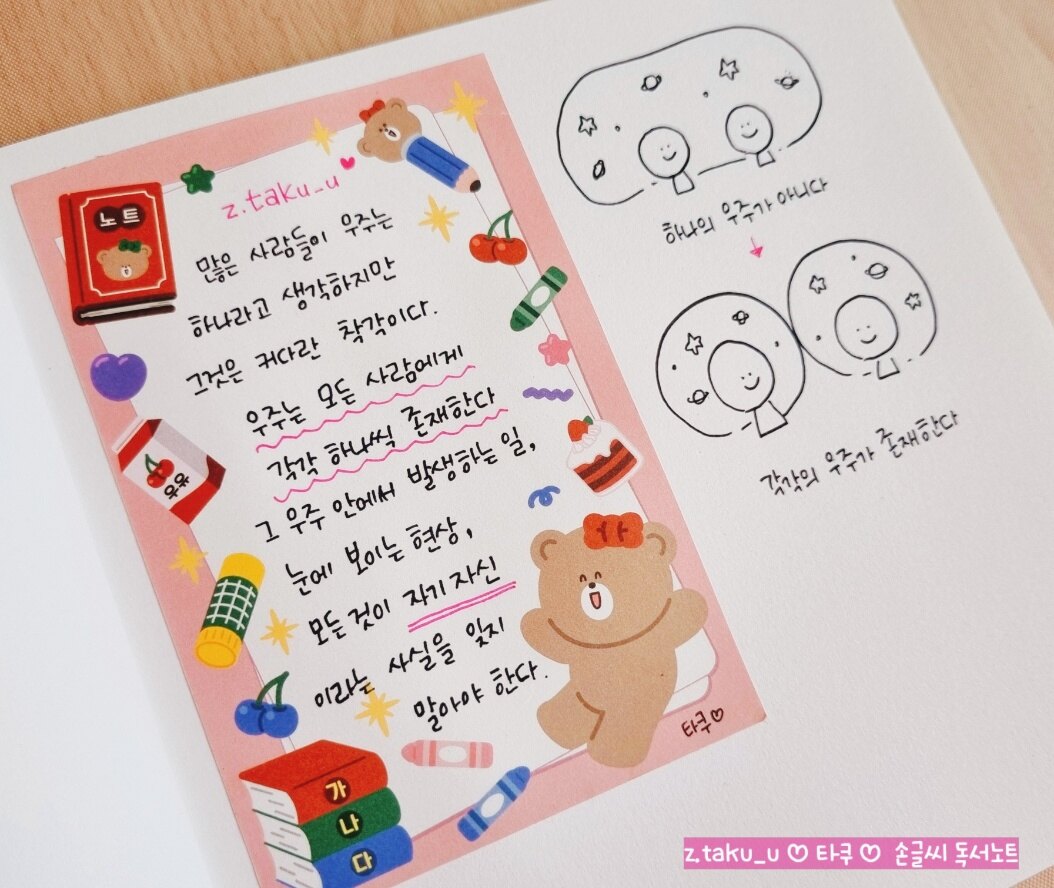 노트
z.taku_u
많은 사람들이 우주는
하나라고 생각하지만
그것은 커다란 착각이다.
우주는 모든 사람에게
각각 하나씩 존재한다
그 우주 안에서 발생하는 일,
눈에 보이는 현상,
모든 것이 자기 자신
이라는 사실을 잊지
말아야 한다.
우유
타쿠♡
가
나
다
하나의 우주가 아니다
각각의 우주가 존재한다
z.taku_u ♡ 타쿠 ♡ 손글씨 독서노트